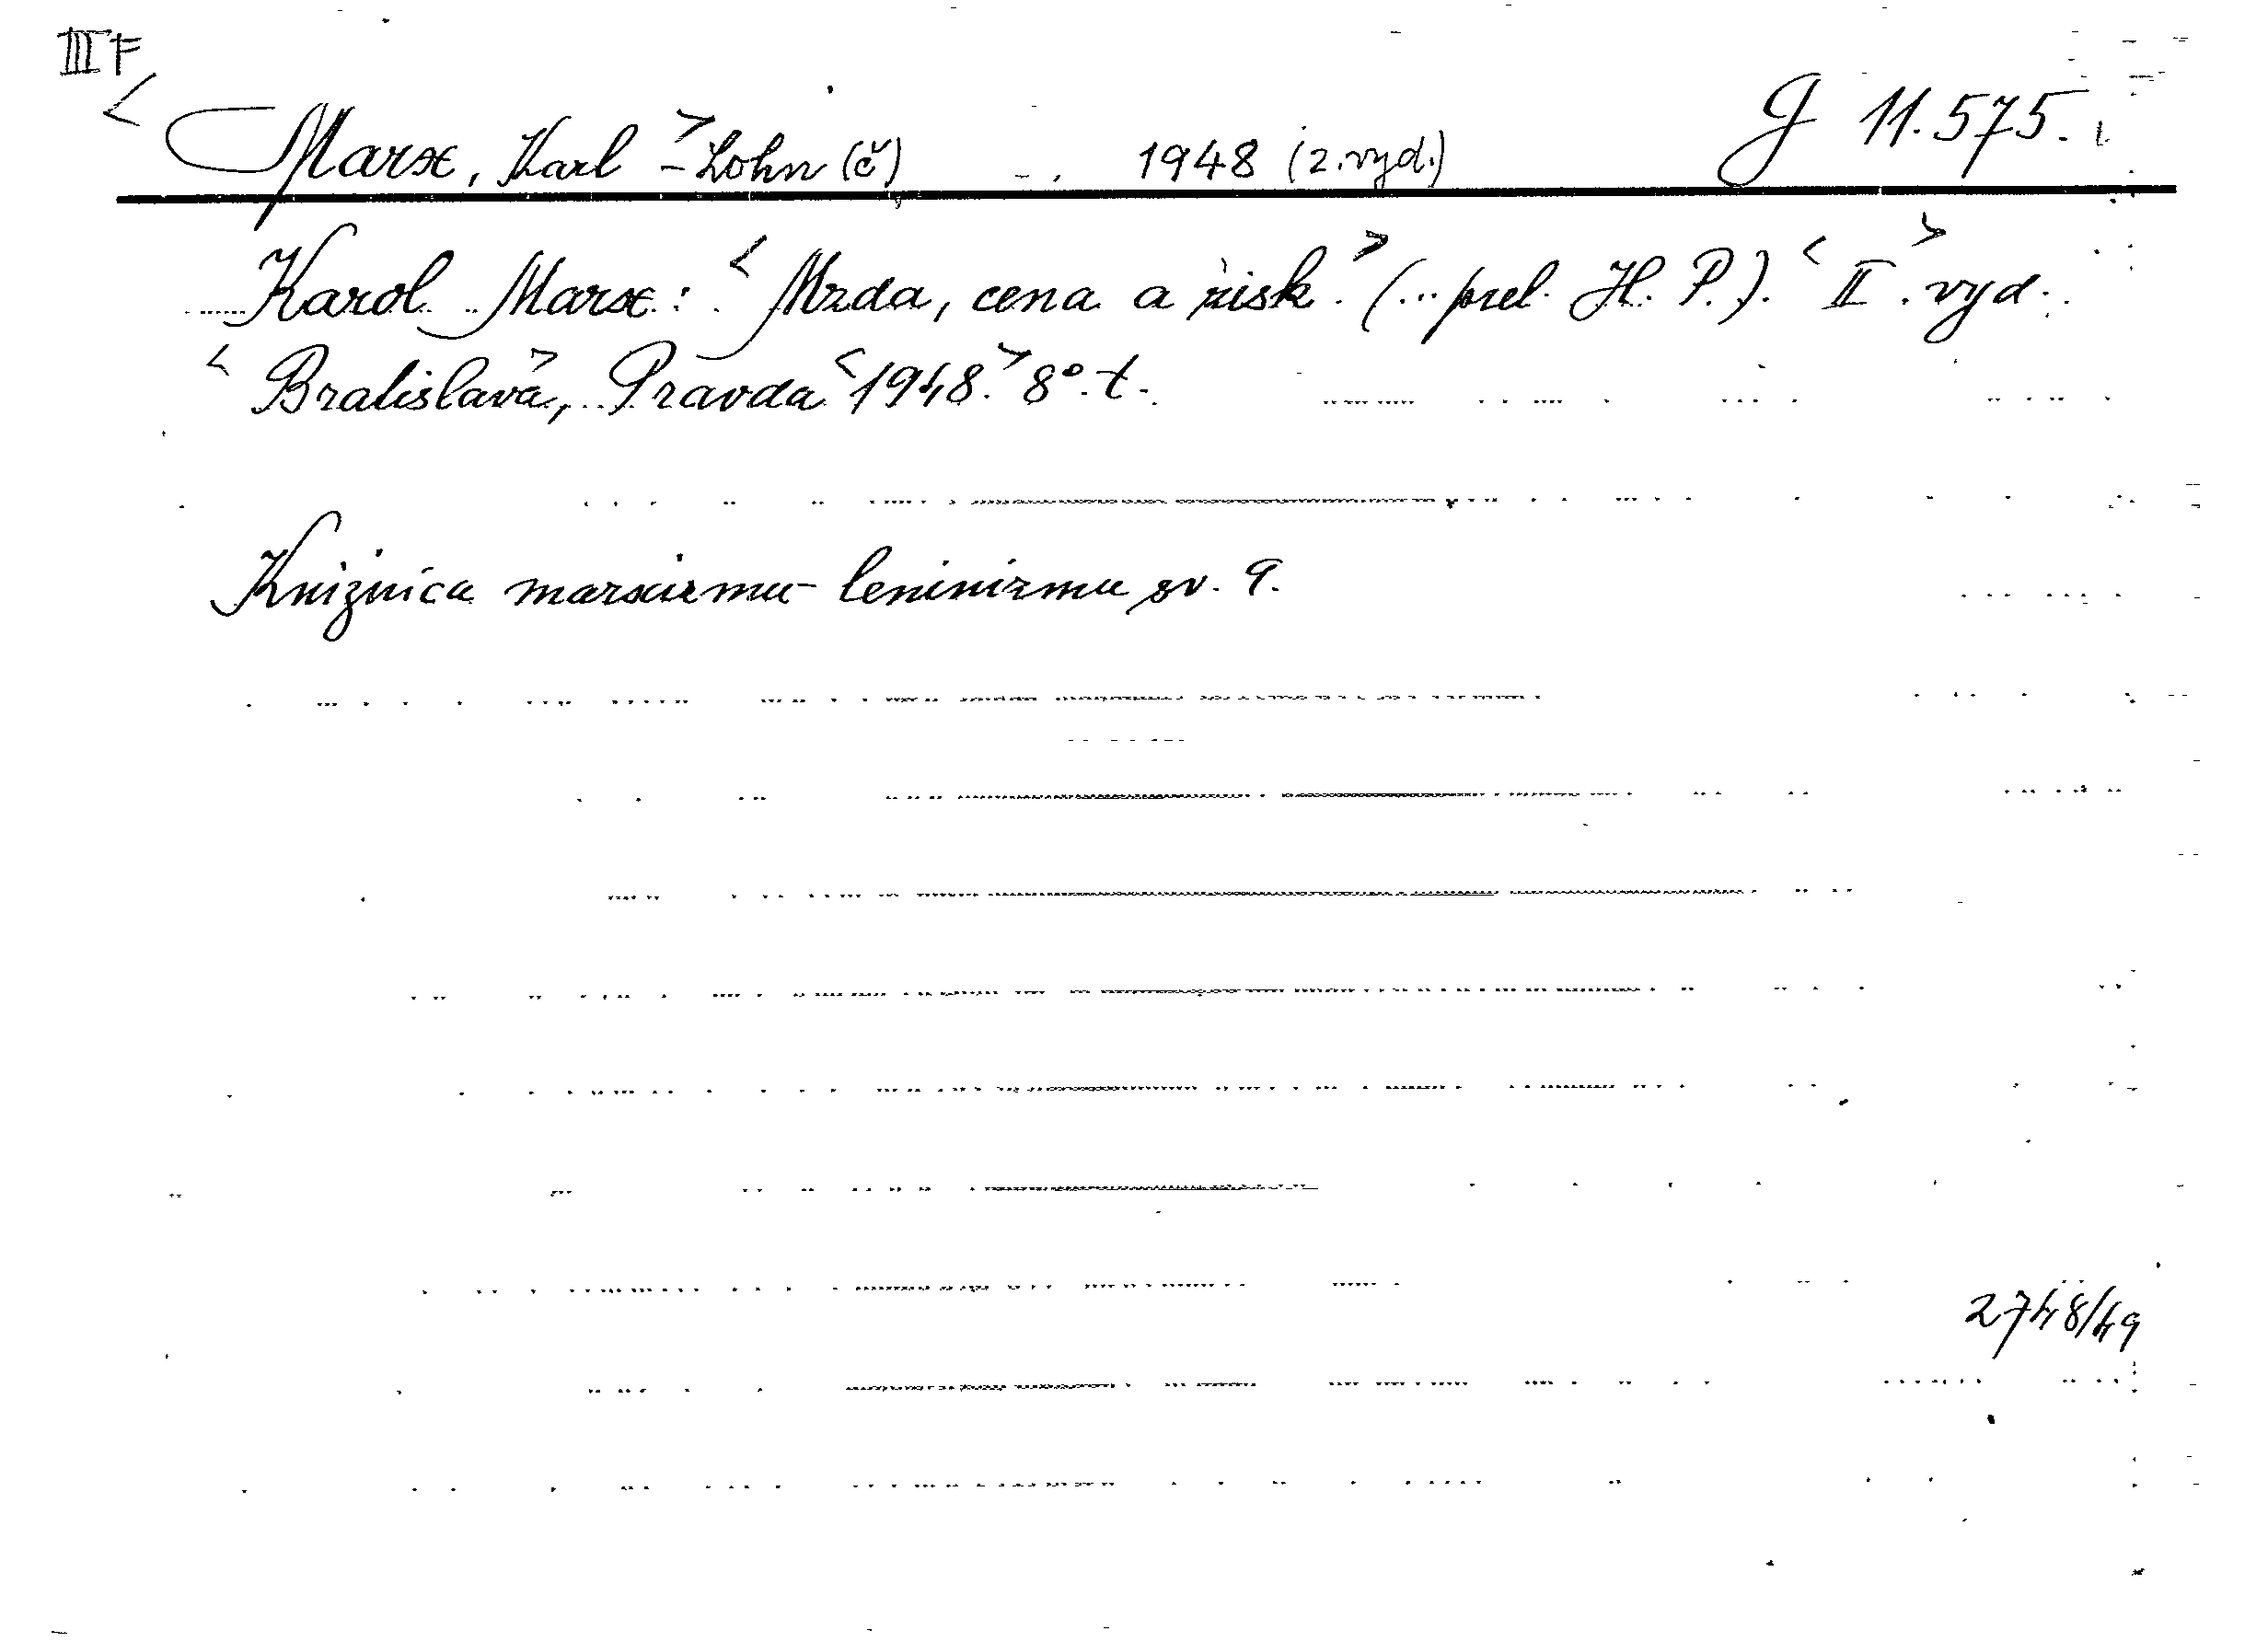 III F
< Marx, Karl > - Lohn (č) 1948 (2. vyd.) G 11.575.
Karol Marx: < Mzda, cena a zisk. > (... prel. H. P.). < II. > vyd.
< Bratislava >, Pravda < 1948. > 8°. t.
Knižnica marxizmu-leninizmu sv. 9.
2748/49